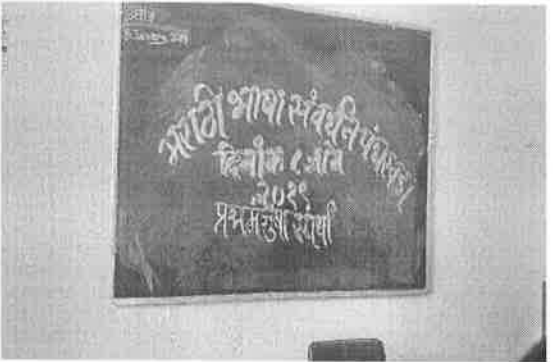 मराठी भाषा संवर्धन पंधरवडा
दिनांक ८ जाने
२०१९
प्रश्नमंजुषा स्पर्धा